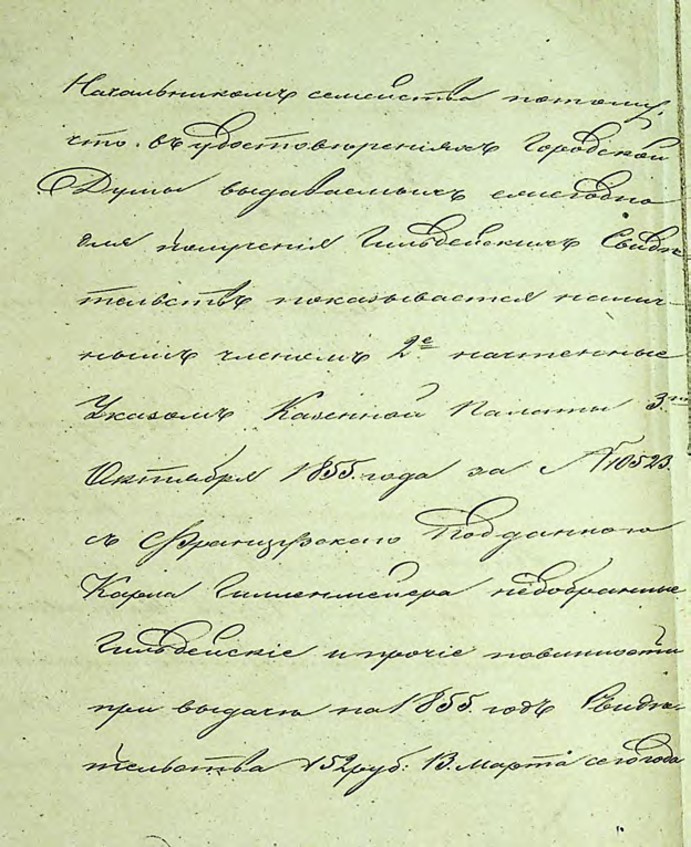 Начальникомъ семейства потому,
что въ удостовѣренiяхъ Городской
Думы выдаваемыхъ ежегодно
для полученiя Гильдейскихъ Свидѣ-
тельствъ показывается налич-
нымъ членомъ 2е начтенные
Указомъ Казенной Палаты 3го
Октября 1855 года за №10523.
съ Французскаго Подданного
Карла Гилленмейера недобранные
Гильдейскiе и прочiе повинности
при выдачѣ на 1855 годъ Свидѣ-
тельства 152 руб: 13. Марта сего года